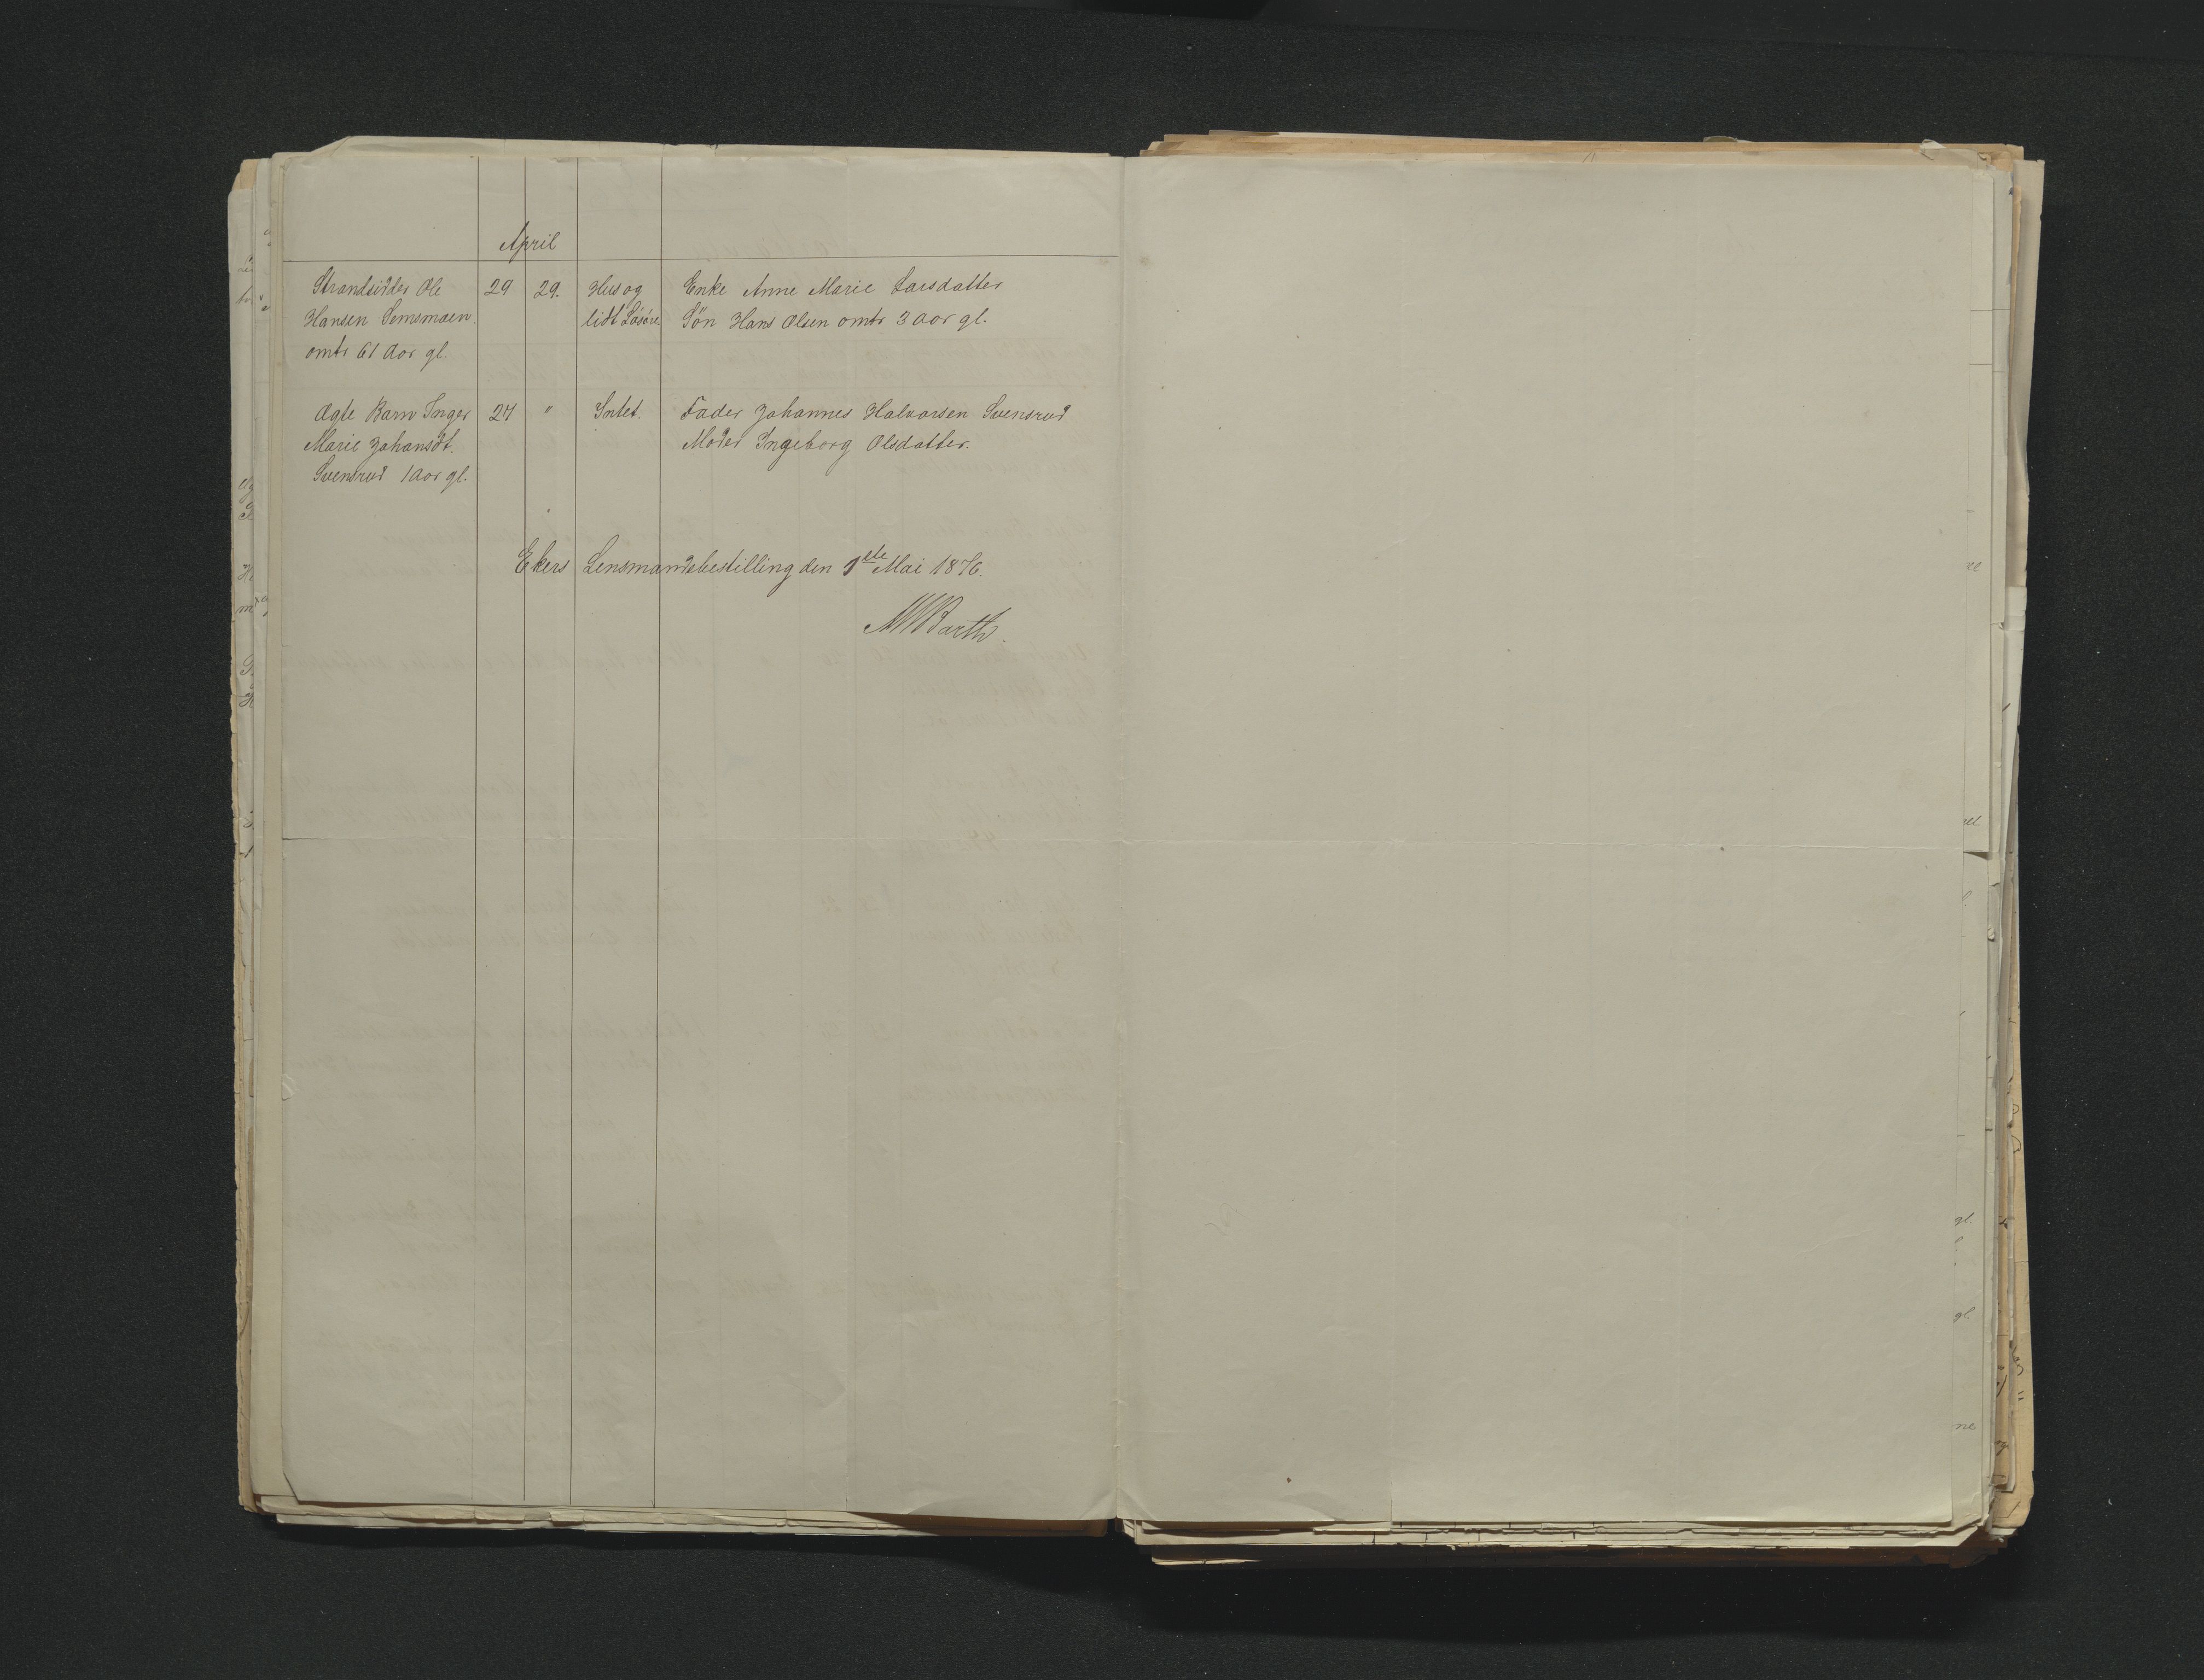 April
Strandsidder Ole 29 29. Hus og Enke Anne Marie Larsdatter
Hansen Semsmoen lidt Løsøre Søn Hans Olsen omtr 3 Aar gl.
omtr 61 Aar gl.
Ægte Barn Inger 27 " Intet. Fader Johannes Halvorsen Svensrud
Marie Johansdt. Moder Ingeborg Olsdatter.
Svensrud 1 Aar gl.
Ekers Lensmandsbestilling den 1ste Mai 1876.
Barth.